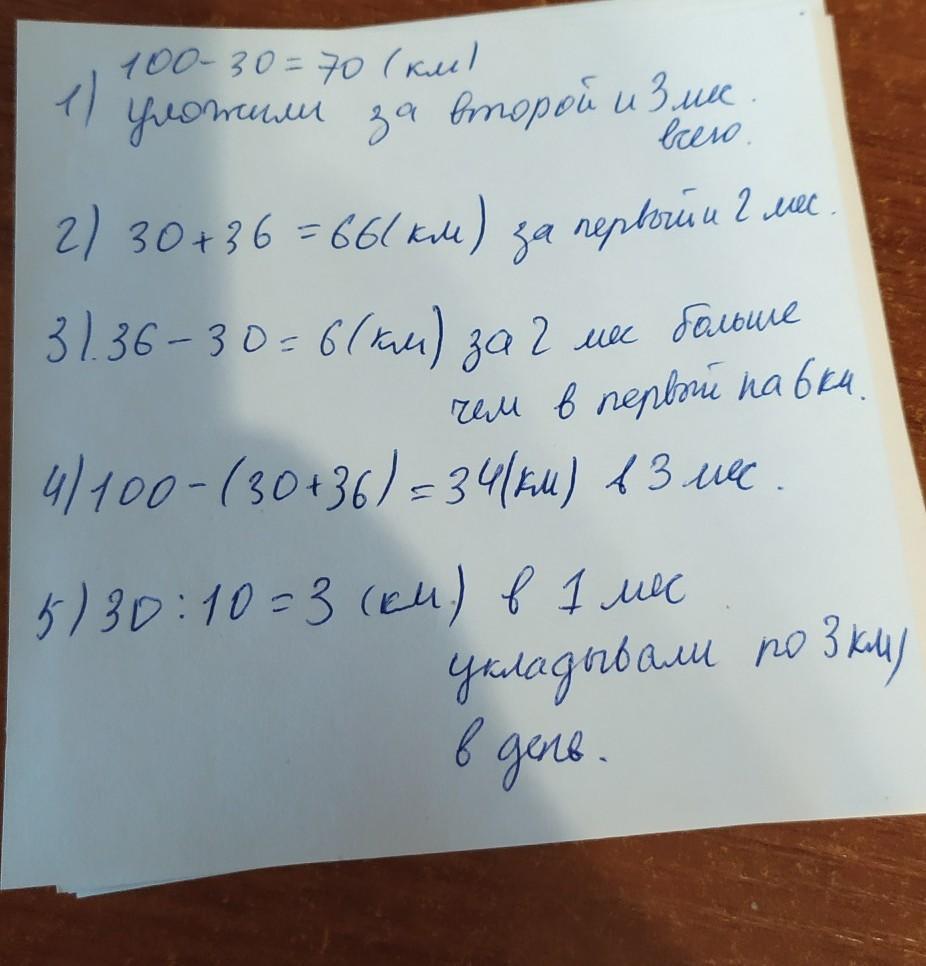 100-30=70 (км)
1) уложили за второй и 3 мес.
всего.
2) 30+36=66(км) за первый и 2 мес.
3).36-30=6(км) за 2 мес больше
чем в первый на 6 км.
4) 100-(30+36)=34(км) в 3 мес.
5) 30:10=3 (км) в 1 мес
укладывали по 3 км)
в день.